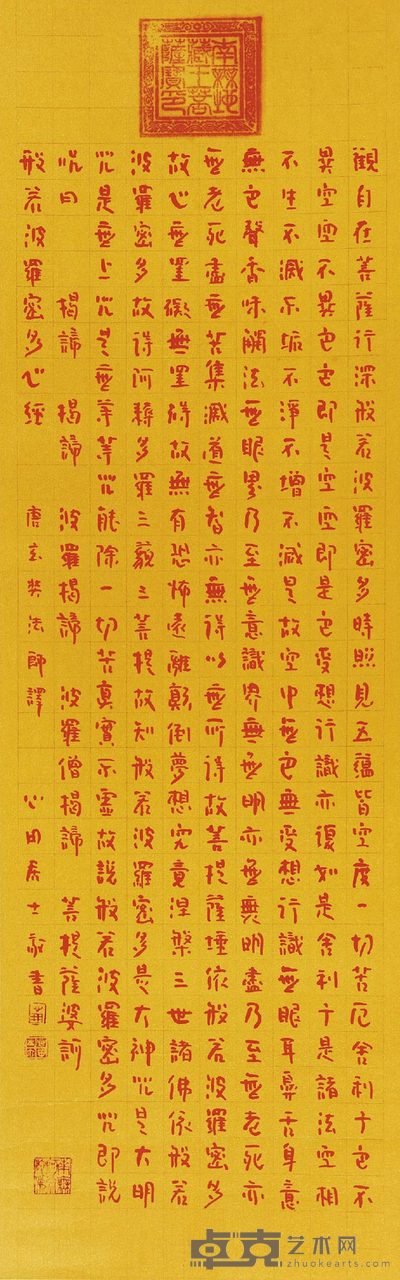 南無地
藏王菩
薩寶印
觀自在菩薩行深般若波羅密多時照見五蘊皆空度一切苦厄舍利子色不
異空空不異色色即是空空即是色受想行識亦復如是舍利子是諸法空相
不生不滅不垢不淨不增不減是故空中無色無受想行識無眼耳鼻舌身意
無色聲香味觸法無眼界乃至無意識界無無明亦無無明盡乃至無老死亦
無老死盡無苦集滅道無智亦無得以無所得故菩提薩埵依般若波羅密多
故心無罣礙無罣碍故無有恐怖遠離顛倒夢想究竟涅槃三世諸佛依般若
波羅密多故得阿耨多羅三藐三菩提故知般若波羅密多是大神咒是大明
咒是無上咒是無等等咒能除一切苦真實不虛故說般若波羅密多咒即說
咒曰 揭諦 揭諦 波羅揭諦 波羅僧揭諦 菩提薩婆訶
般若波羅密多心經 唐玄奘法師譯 心田居士敬書
卓克艺术网
zhuokearts.com